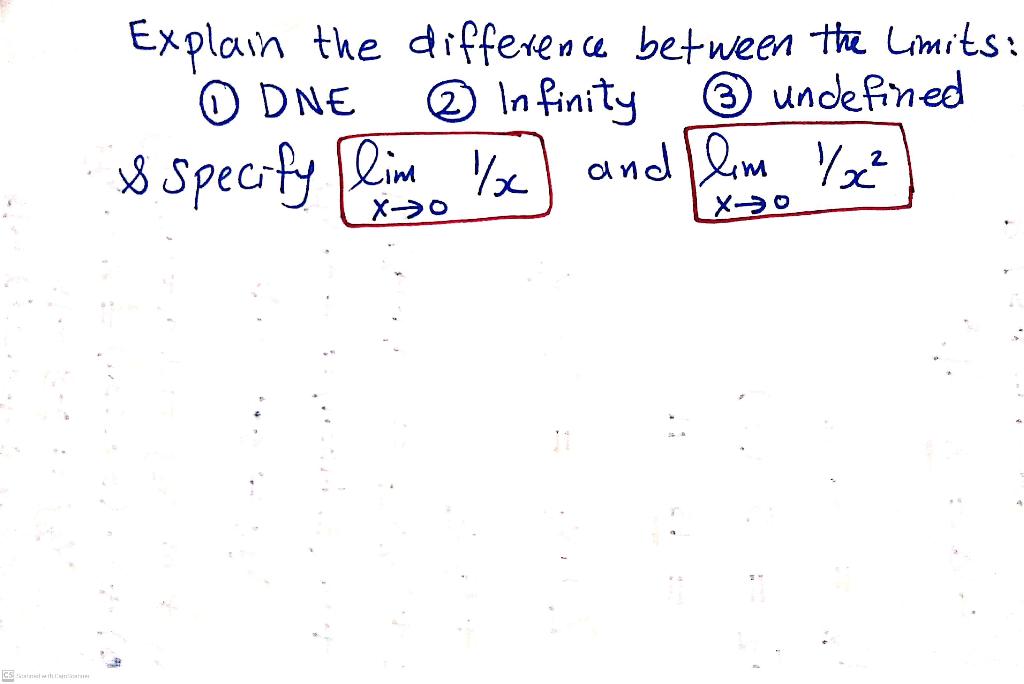 Explain the difference between the Limits:
① DNE ② Infinity ③ undefined
& specify lim x→0 1/x and lim x→0 1/x²
CS Scanned with CamScanner